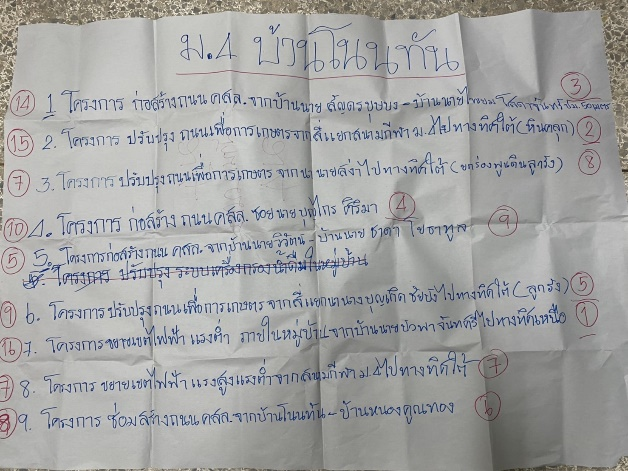 ม.4 บ้านโนนทัน
14 1. โครงการ ก่อสร้างถนน คสล. จากบ้านนาย - บ้านนาย 3
15 2. โครงการ ปรับปรุง ถนนเพื่อการเกษตรจากสี่แยกสนามกีฬา ม.4 ไปทางทิศใต้ (หินคลุก) 2
7 3. โครงการ ปรับปรุงถนนเพื่อการเกษตร จาก นา นายสง่า ไปทางทิศใต้ (ยกร่องพูนดินลูกรัง) 8
10 4. โครงการ ก่อสร้าง ถนน คสล. ซอย นาย บุญไกร ศิริมา 4
5 5. โครงการก่อสร้างถนน คสล. จากบ้านนายวิรัตน์ - บ้านนาย ชาดา โยธาทูล 9
5. โครงการ ปรับปรุง ระบบเครื่องกรองน้ำดื่มในหมู่บ้าน
9 6. โครงการปรับปรุงถนนเพื่อการเกษตร จากสี่แยกนานางบุญเกิด ไปทางทิศใต้ (ลูกรัง) 5
16 7. โครงการขยายเขตไฟฟ้า แรงต่ำ ภายในหมู่บ้าน จากบ้านนายบัวพา จันทศรีไปทางทิศเหนือ 1
7 8. โครงการ ขยายเขตไฟฟ้า แรงสูงแรงต่ำจากสนามกีฬา ม.4 ไปทางทิศใต้ 7
8 9. โครงการ ซ่อมสร้างถนน คสล. จากบ้านโนนทัน - บ้านหนองคูณทอง 6